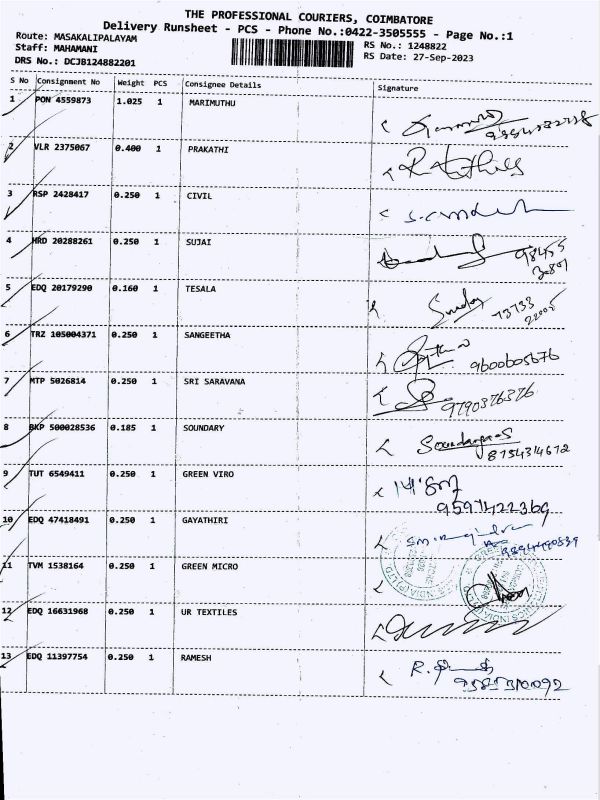 THE PROFESSIONAL COURIERS, COIMBATORE
Delivery Runsheet - PCS - Phone No.:0422-3505555 - Page No.:1
Route: MASAKALIPALAYAM
Staff: MAHAMANI
DRS No.: DCJB124882201
RS No.: 1248822
RS Date: 27-Sep-2023
S No Consignment No Weight PCS Consignee Details Signature
1 PON 4559873 1.025 1 MARIMUTHU
2 VLR 2375067 0.400 1 PRAKATHI
3 RSP 2428417 0.250 1 CIVIL
4 HRD 20288261 0.250 1 SUJAI
5 EDQ 20179290 0.160 1 TESALA
6 TRZ 105004371 0.250 1 SANGEETHA 9600605676
7 MTP 5026814 0.250 1 SRI SARAVANA 9790376376
8 BKP 500028536 0.185 1 SOUNDARY 8754314672
9 TUT 6549411 0.250 1 GREEN VIRO 9597422369
10 EDQ 47418491 0.250 1 GAYATHIRI
11 TVM 1538164 0.250 1 GREEN MICRO
12 EDQ 16631968 0.250 1 UR TEXTILES
13 EDQ 11397754 0.250 1 RAMESH